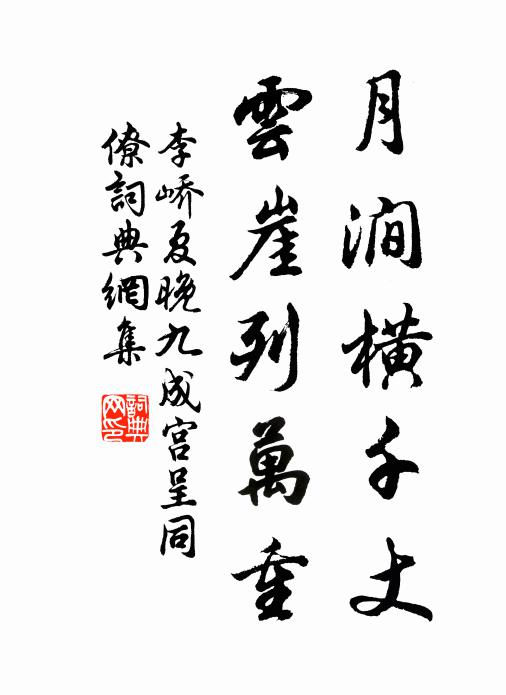 月澗橫千丈
雲崖列萬重
李嶠夏晚九成宮呈同
僚詞典網集
詞典網印